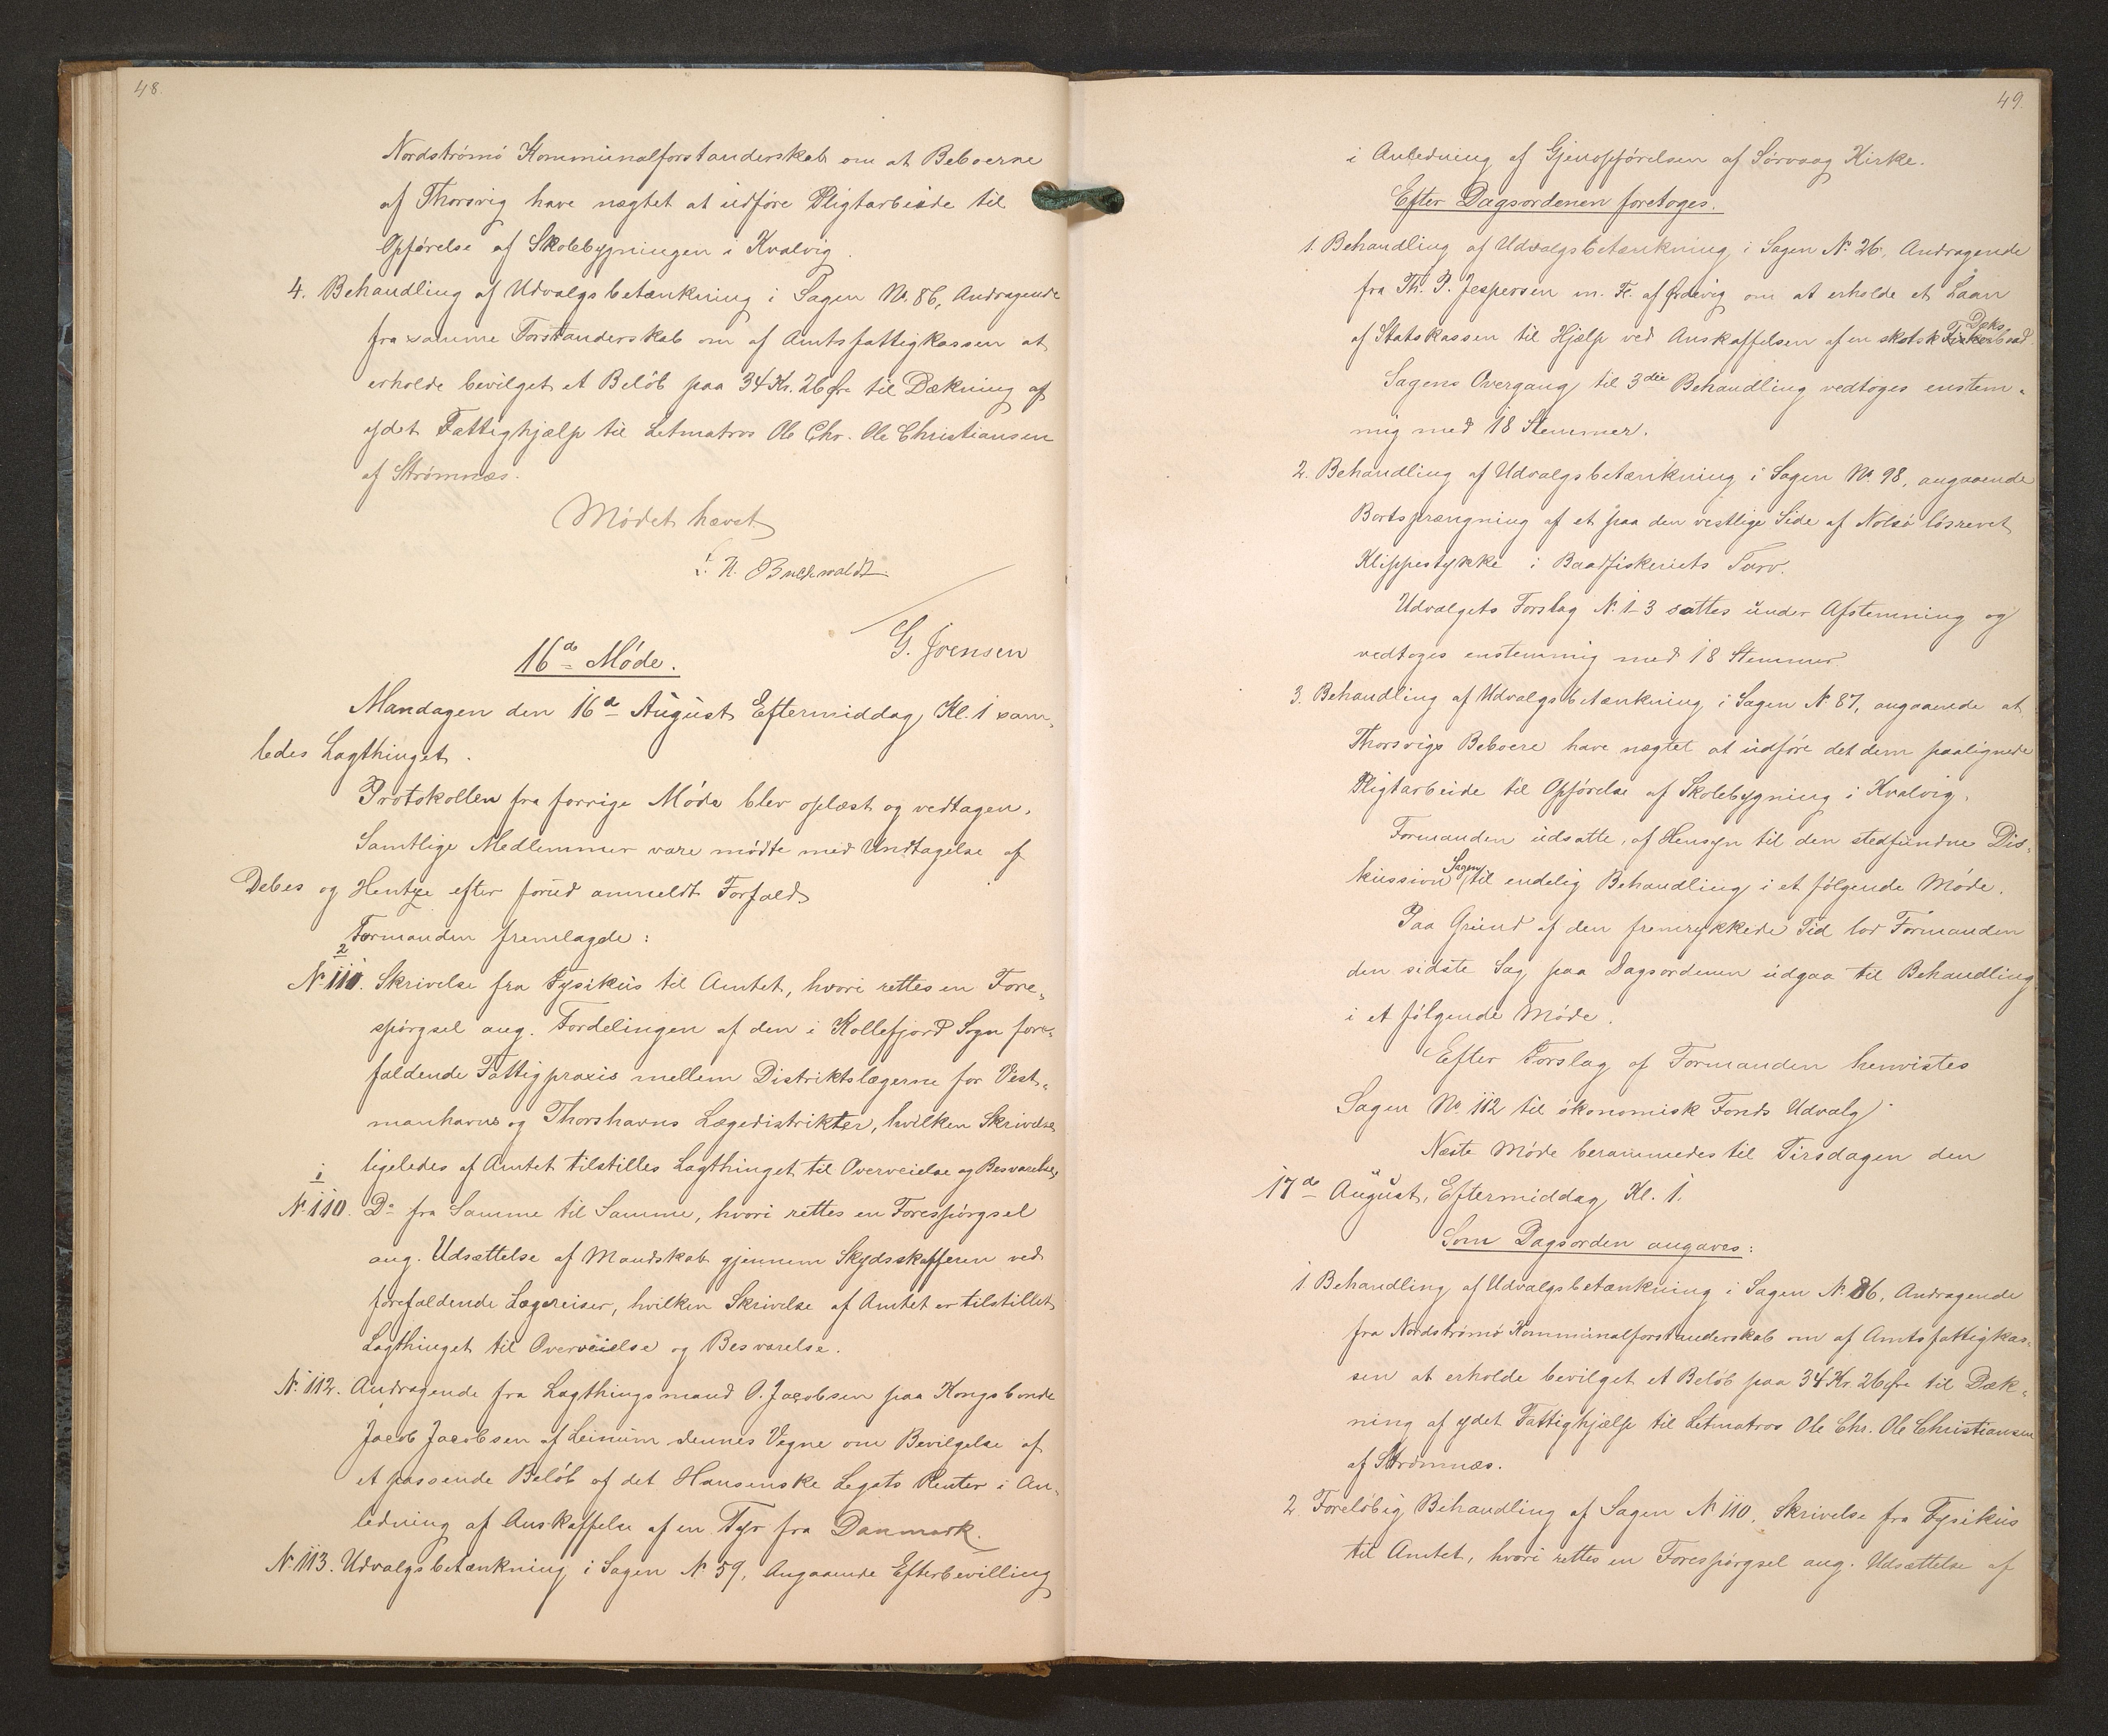 48.
Nordströmö Kommunalforstanderskab om at Beboerne
af Thorsvig have nægtet at udføre Pligtarbeide til
Opførelse af Skolebygningen i Kvalvig.
4. Behandling af Udvalgsbetænkning i Sagen No. 86, Andragende
fra samme Forstanderskab om af Amtsfattigkassen at
erholde bevilget et Beløb paa 34 Kr. 26 Øre til Dækning af
ydet Fattighjælp til Letmatros Ole Chr. Ole Christiansen
af Strømnæs.
Mødet hævet
N. Buchwaldt.
G. Joensen
16de Møde.
Mandagen den 16de August Eftermiddag Kl. 1 sam-
ledes Lagthinget.
Protokollen fra forrige Møde blev oplæst og vedtagen.
Samtlige Medlemmer vare mødte med Undtagelse af
Debes og Hentze efter forud anmeldt Forfald.
Formanden fremlagde:
2
No 110. Skrivelse fra Fysikus til Amtet, hvori rettes en Fore-
spørgsel ang. Fordelingen af den i Kollefjord Sogn fore-
faldende Fattigpraxis mellem Distriktslægerne for Vest-
manhavns og Thorshavns Lægedistrikter, hvilken Skrivelse
ligeledes af Amtet tilstilles Lagthinget til Overveielse og Besvarelse,
1
No 110. Do fra Samme til Samme, hvori rettes en Forespørgsel
ang. Udsættelse af Mandskab gjennem Skydsskafferen ved
forefaldende Lægereiser, hvilken Skrivelse af Amtet er tilstillet
Lagthinget til Overveielse og Besvarelse.
No 112. Andragende fra Lagthingsmand O. Jacobsen paa Kongsbonde
Jacob Jacobsen af Leinum dennes Vegne om Bevilgelse af
et passende Beløb af det Hansenske Legats Renter i An-
ledning af Anskaffelse af en Tyr fra Danmark.
No 113. Udvalgsbetænkning i Sagen No 59, Angaaende Efterbevilling
49.
i Anledning af Gjenopførelsen af Sørvaag Kirke.
Efter Dagsordenen foretoges.
1. Behandling af Udvalgsbetænkning i Sagen No. 26, Andragende
fra Th. P. Jespersen m. Fl. af Ördevig om at erholde et Laan
Dæks
af Statskassen til Hjælp ved Anskaffelsen af en skotsk Fiskerbaad.
Sagens Overgang til 3die Behandling vedtoges enstem-
mig med 18 Stemmer.
2. Behandling af Udvalgsbetænkning i Sagen No. 98, angaaende
Bortsprængning af et paa den vestlige Side af Nolsø løsrevet
Klippestykke i Baadfiskeriets Tarv.
Udvalgets Forslag No. 1-3 sattes under Afstemning og
vedtoges enstemmig med 18 Stemmer.
3. Behandling af Udvalgsbetænkning i Sagen No 87, angaaende at
Thorsvigs Beboere have nægtet at udføre det dem paalignede
Pligtarbeide til Opførelse af Skolebygning i Kvalvig.
Formanden udsatte, af Hensyn til den stedfundne Dis-
Sagen
kussion til endelig Behandling i et følgende Møde.
Paa Grund af den fremrykkede Tid lod Formanden
den sidste Sag paa Dagsordenen udgaa til Behandling
i et følgende Møde.
Efter Forslag af Formanden henvistes
Sagen No. 112 til økonomisk Fonds Udvalg.
Næste Møde berammedes til Tirsdagen den
17de August, Eftermiddag Kl. 1.
Som Dagsorden angaves:
1. Behandling af Udvalgsbetænkning i Sagen No. 86, Andragende
fra Nordströmö Kommunalforstanderskab om af Amtsfattigkas-
sen at erholde bevilget et Beløb paa 34 Kr. 26 Øre til Dæk-
ning af ydet Fattighjælp til Letmatros Ole Chr. Ole Christiansen
af Strømnæs.
2 Foreløbig Behandling af Sagen No 110. Skrivelse fra Fysikus
til Amtet, hvori rettes en Forespørgsel ang. Udsættelse af